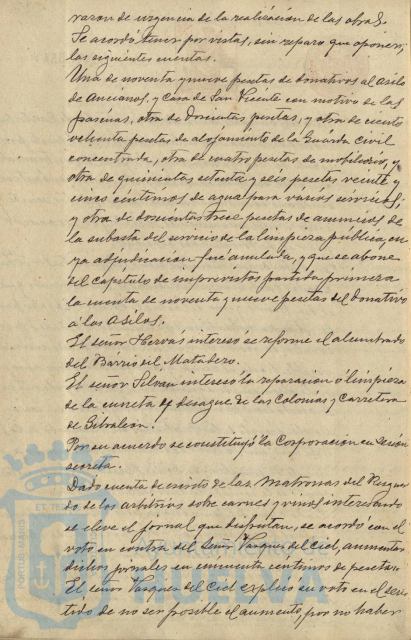 razon de urgencia de la realización de las obras.
Se acordó tener por vistas, sin reparo que oponer,
las siguientes cuentas.
Una de noventa y nueve pesetas de donativos al Asilo
de Ancianos, y casa de San Vicente con motivo de las
pascuas, otra de doscientas pesetas, y otra de ciento
ochenta pesetas de alojamiento de la Guardia civil
concentrada, otra de cuatro pesetas de y
otra de quinientas setenta y seis pesetas veinte y
cinco céntimos de agua para varios servicios;
y otra de doscientas trece pesetas de anuncios de
la subasta del servicio de la limpieza pública, cu
ya adjudicacion fué anulada, y que se abone
del capítulo de imprevistos partida primera
la cuenta de noventa y nueve pesetas del donativo
á los Asilos.
El señor Hervás interesó se reforme el alumbrado
del Barrio del Matadero.
El señor Silvan interesó la reparacion ó limpieza
de la cuneta de desague de las Colonias y Carretera
de Gibraleon.
Por su acuerdo se constituyó la Corporacion en sesión
secreta.
Dado cuenta de escrito de las Matronas del Resguar
do de los arbitrios sobre carnes y vinos interesando
se eleve el jornal que disfrutan, se acordó con el
voto en contra del Señor Vazquez del Cid, aumentar
dichos jornales en cincuenta céntimos de peseta.
El señor Vazquez del Cid explicó su voto en el sen
tido de no ser posible el aumento, por no haber
PORTUS MARIS